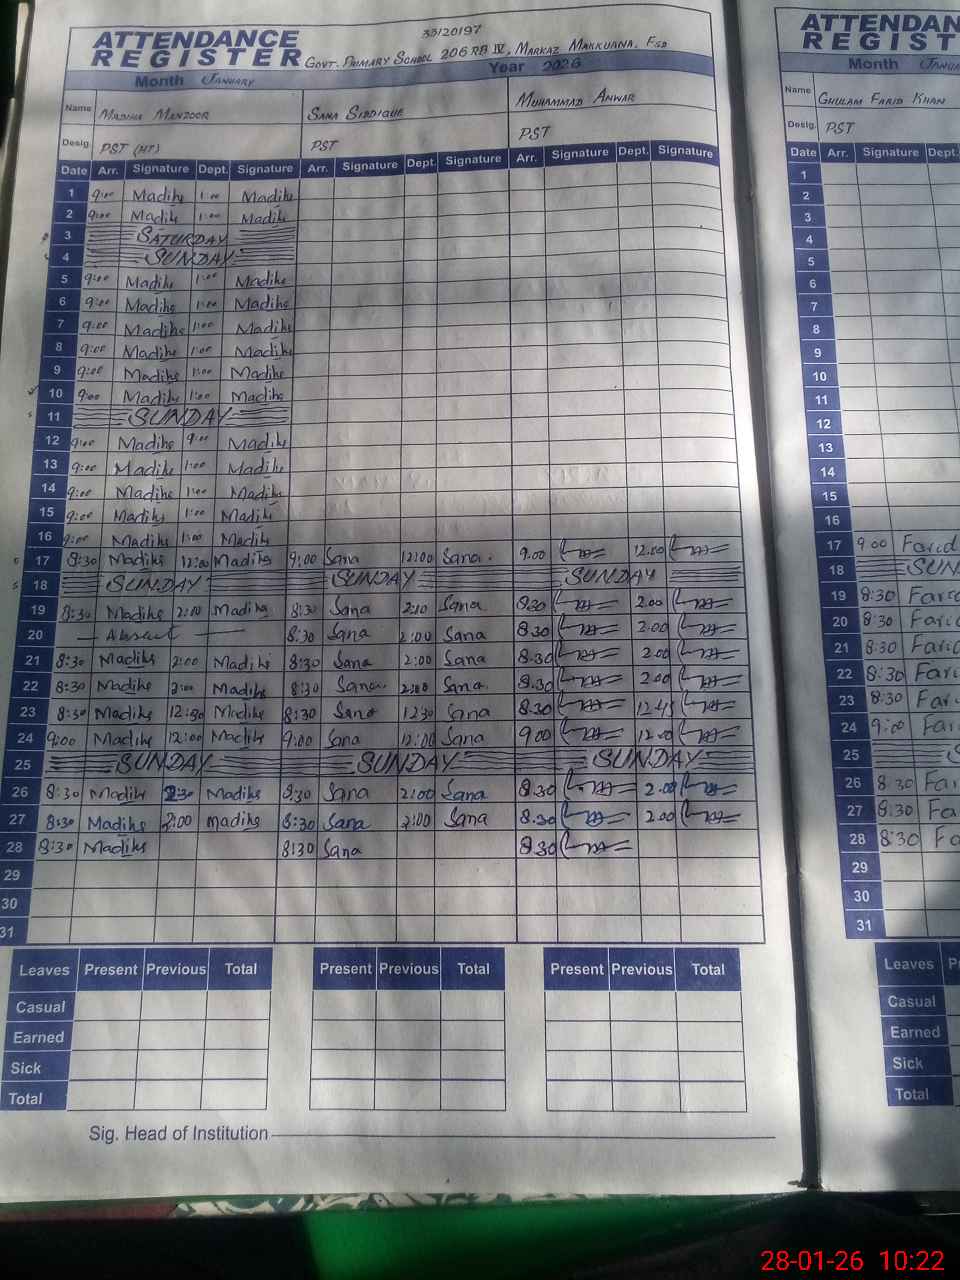 33120197
ATTENDANCE
REGISTER Govt. Primary School 206 RB IV, Markaz Makkuana, Fsd
Month January Year 2026
Name Madiha Manzoor Sana Siddique Muhammad Anwar
Desig. PST (HT) PST PST
Date Arr. Signature Dept. Signature Arr. Signature Dept. Signature Arr. Signature Dept. Signature
1 9:00 Madiha 1:00 Madiha
2 9:00 Madiha 1:00 Madiha
3 SATURDAY
4 SUNDAY
5 9:00 Madiha 1:00 Madiha
6 9:00 Madiha 1:00 Madiha
7 9:00 Madiha 1:00 Madiha
8 9:00 Madiha 1:00 Madiha
9 9:00 Madiha 1:00 Madiha
10 9:00 Madiha 1:00 Madiha
11 SUNDAY
12 9:00 Madiha 9:00 Madiha
13 9:00 Madiha 1:00 Madiha
14 9:00 Madiha 1:00 Madiha
15 9:00 Madiha 1:00 Madiha
16 9:00 Madiha 1:00 Madiha
17 8:30 Madiha 12:00 Madiha 9:00 Sana 12:00 Sana. 9.00 12.00
18 SUNDAY SUNDAY SUNDAY
19 8:30 Madiha 2:00 Madiha 8:30 Sana 2:10 Sana 8.30 2.00
20 — Absent — 8:30 Sana 2:00 Sana 8.30 2.00
21 8:30 Madiha 2:00 Madiha 8:30 Sana 2:00 Sana 8.30 2.00
22 8:30 Madiha 2:00 Madiha 8:30 Sana 2:00 Sana. 8.30 2.00
23 8:30 Madiha 12:30 Madiha 8:30 Sana 12 30 Sana 8.30 12.45
24 9:00 Madiha 12:00 Madiha 9:00 Sana 12:00 Sana 9.00 12.00
25 SUNDAY SUNDAY SUNDAY
26 8:30 Madiha 2:30 Madiha 8:30 Sana 2:00 Sana 8.30 2.00
27 8:30 Madiha 2:00 madiha 8:30 Sana 2:00 Sana 8.30 2.00
28 8:30 Madiha 8:30 Sana 8.30
29
30
31
Leaves Present Previous Total Present Previous Total Present Previous Total
Casual
Earned
Sick
Total
Sig. Head of Institution
ATTENDAN
REGIST
Month Janua
Name Ghulam Farid Khan
Desig. PST
Date Arr. Signature Dept.
1
2
3
4
5
6
7
8
9
10
11
12
13
14
15
16
17 9 00 Farid
18 SUN
19 8:30 Farid
20 8:30 Farid
21 8:30 Farid
22 8:30 Far
23 8:30 Far
24 9:00 Far
25 S
26 8 30 Far
27 8:30 Fa
28 8:30 Fa
29
30
31
Leaves P
Casual
Earned
Sick
Total
28-01-26 10:22